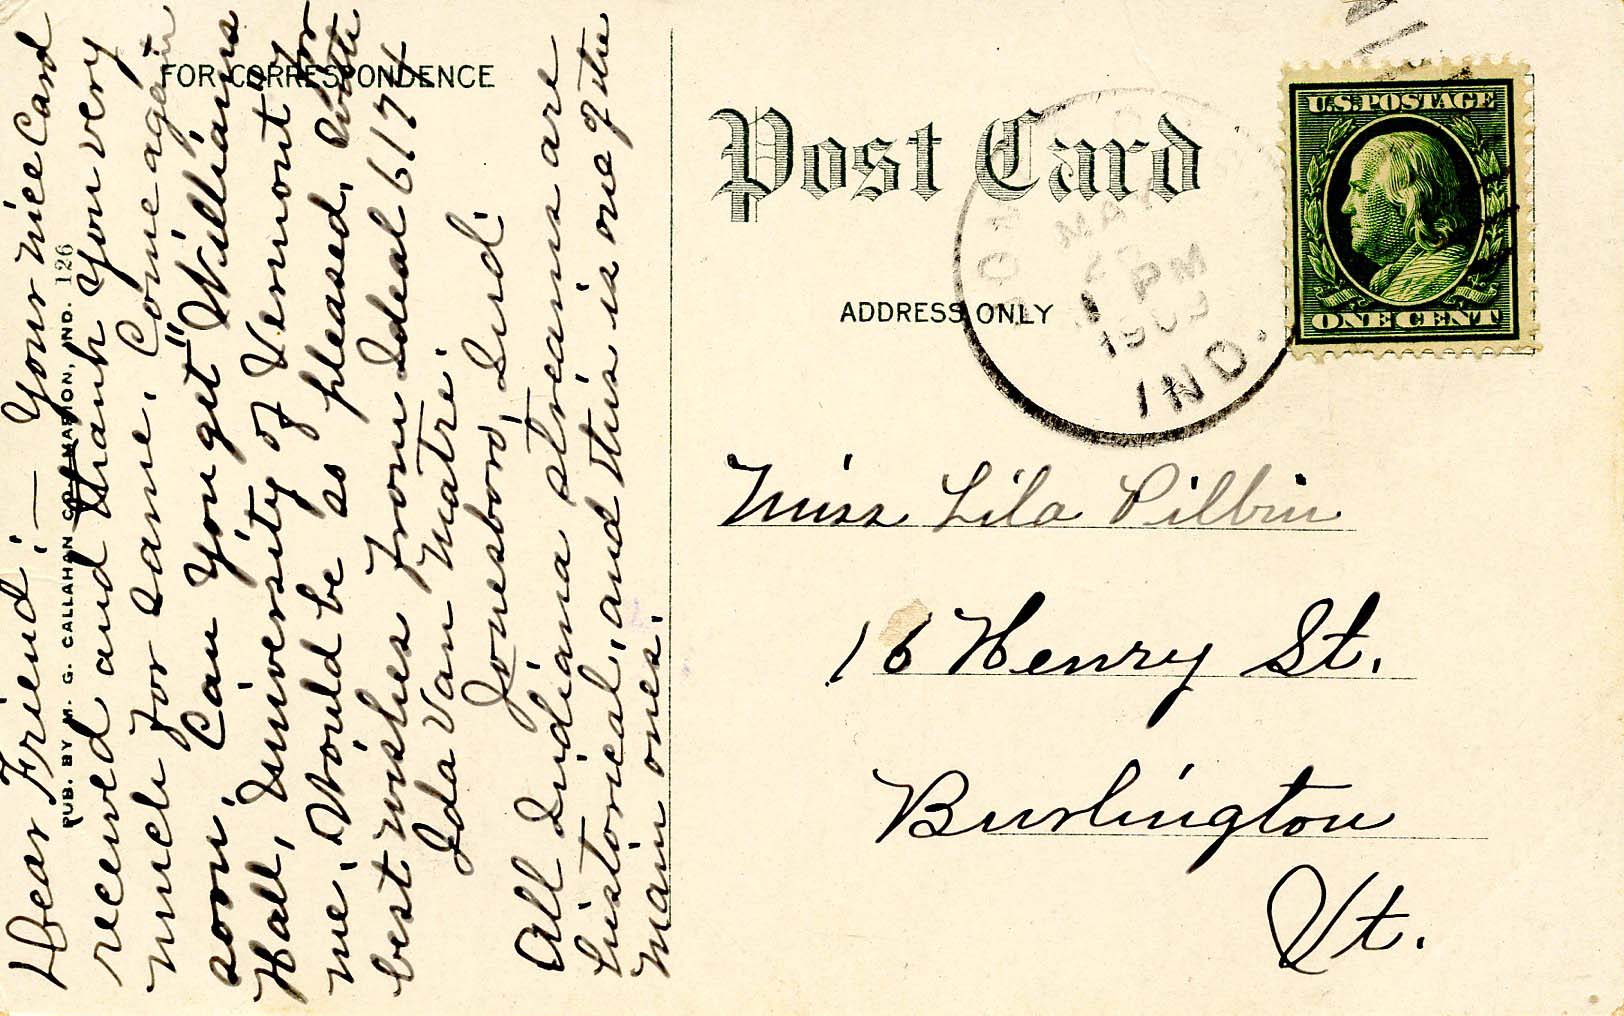 Dear Friend:— Your nice Card
received and thank you very
much for same. Come again
soon. Can you get "Williams
Hall, University of Vermont" for
me. Would be so pleased. With
best wishes from Ideal 617
Ida Van Matre.
Jonesboro, Ind.
All Indiana streams are
historical, and this is one of the
main ones.
PUB. BY M. G. CALLAHAN CO. MARION, IND. 126
FOR CORRESPONDENCE
Post Card
ADDRESS ONLY
MAY
PM
1909
IND.
U.S. POSTAGE
ONE CENT
Miss Lila Pilbin
16 Henry St.
Burlington
Vt.